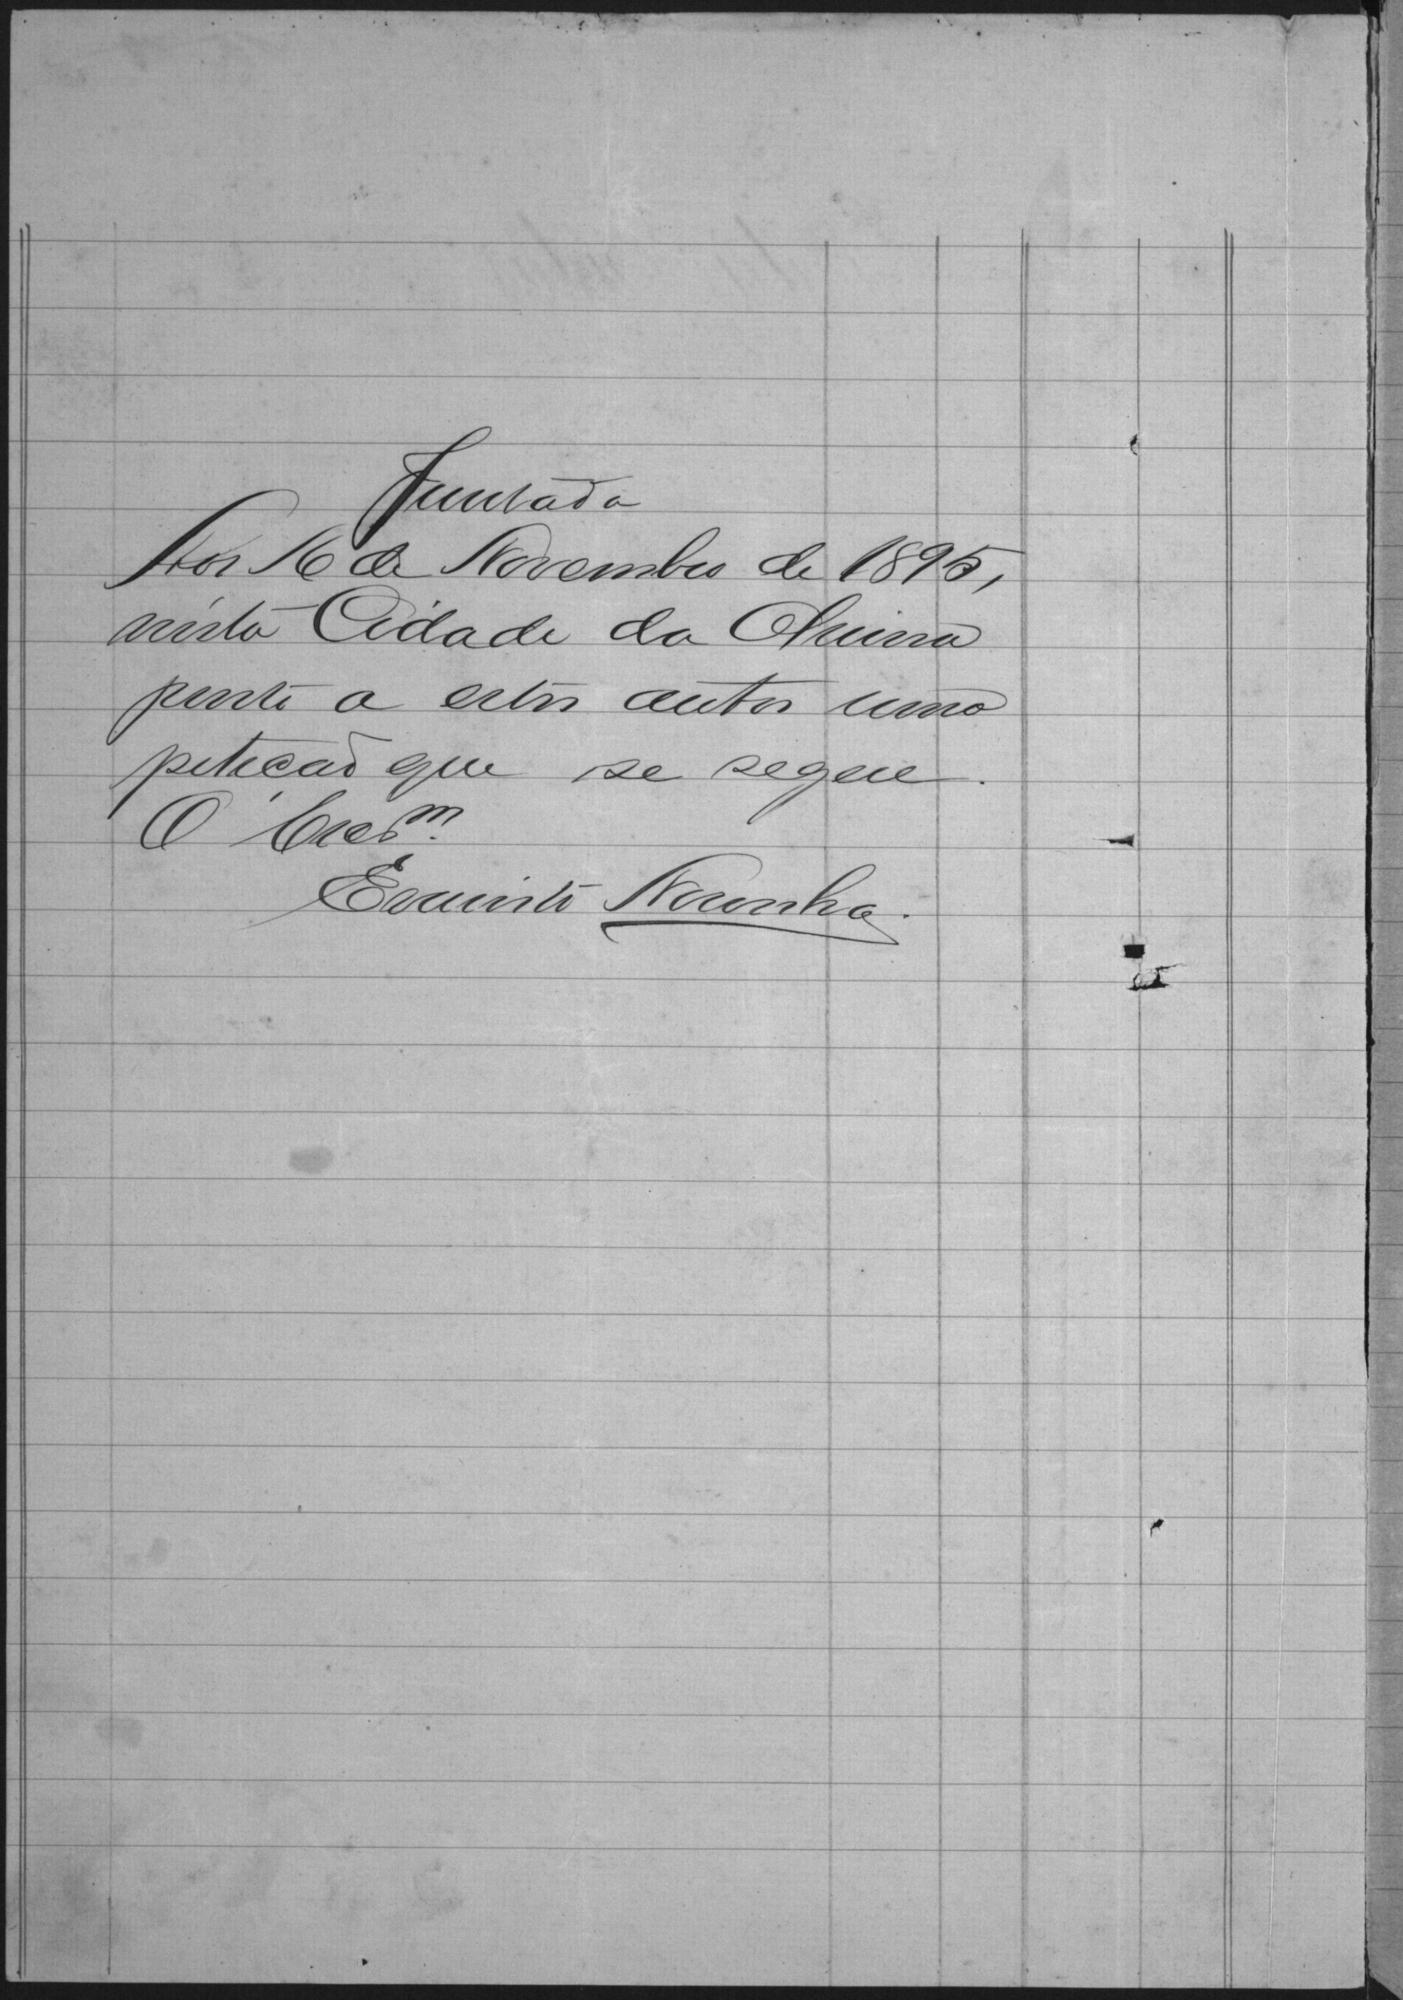 Juntada
Aos 16 de Novembro de 1895,
nesta Cidade da
junto a estes autos uma
petição que se segue.
O Escr.m
Evaristo Noronha.